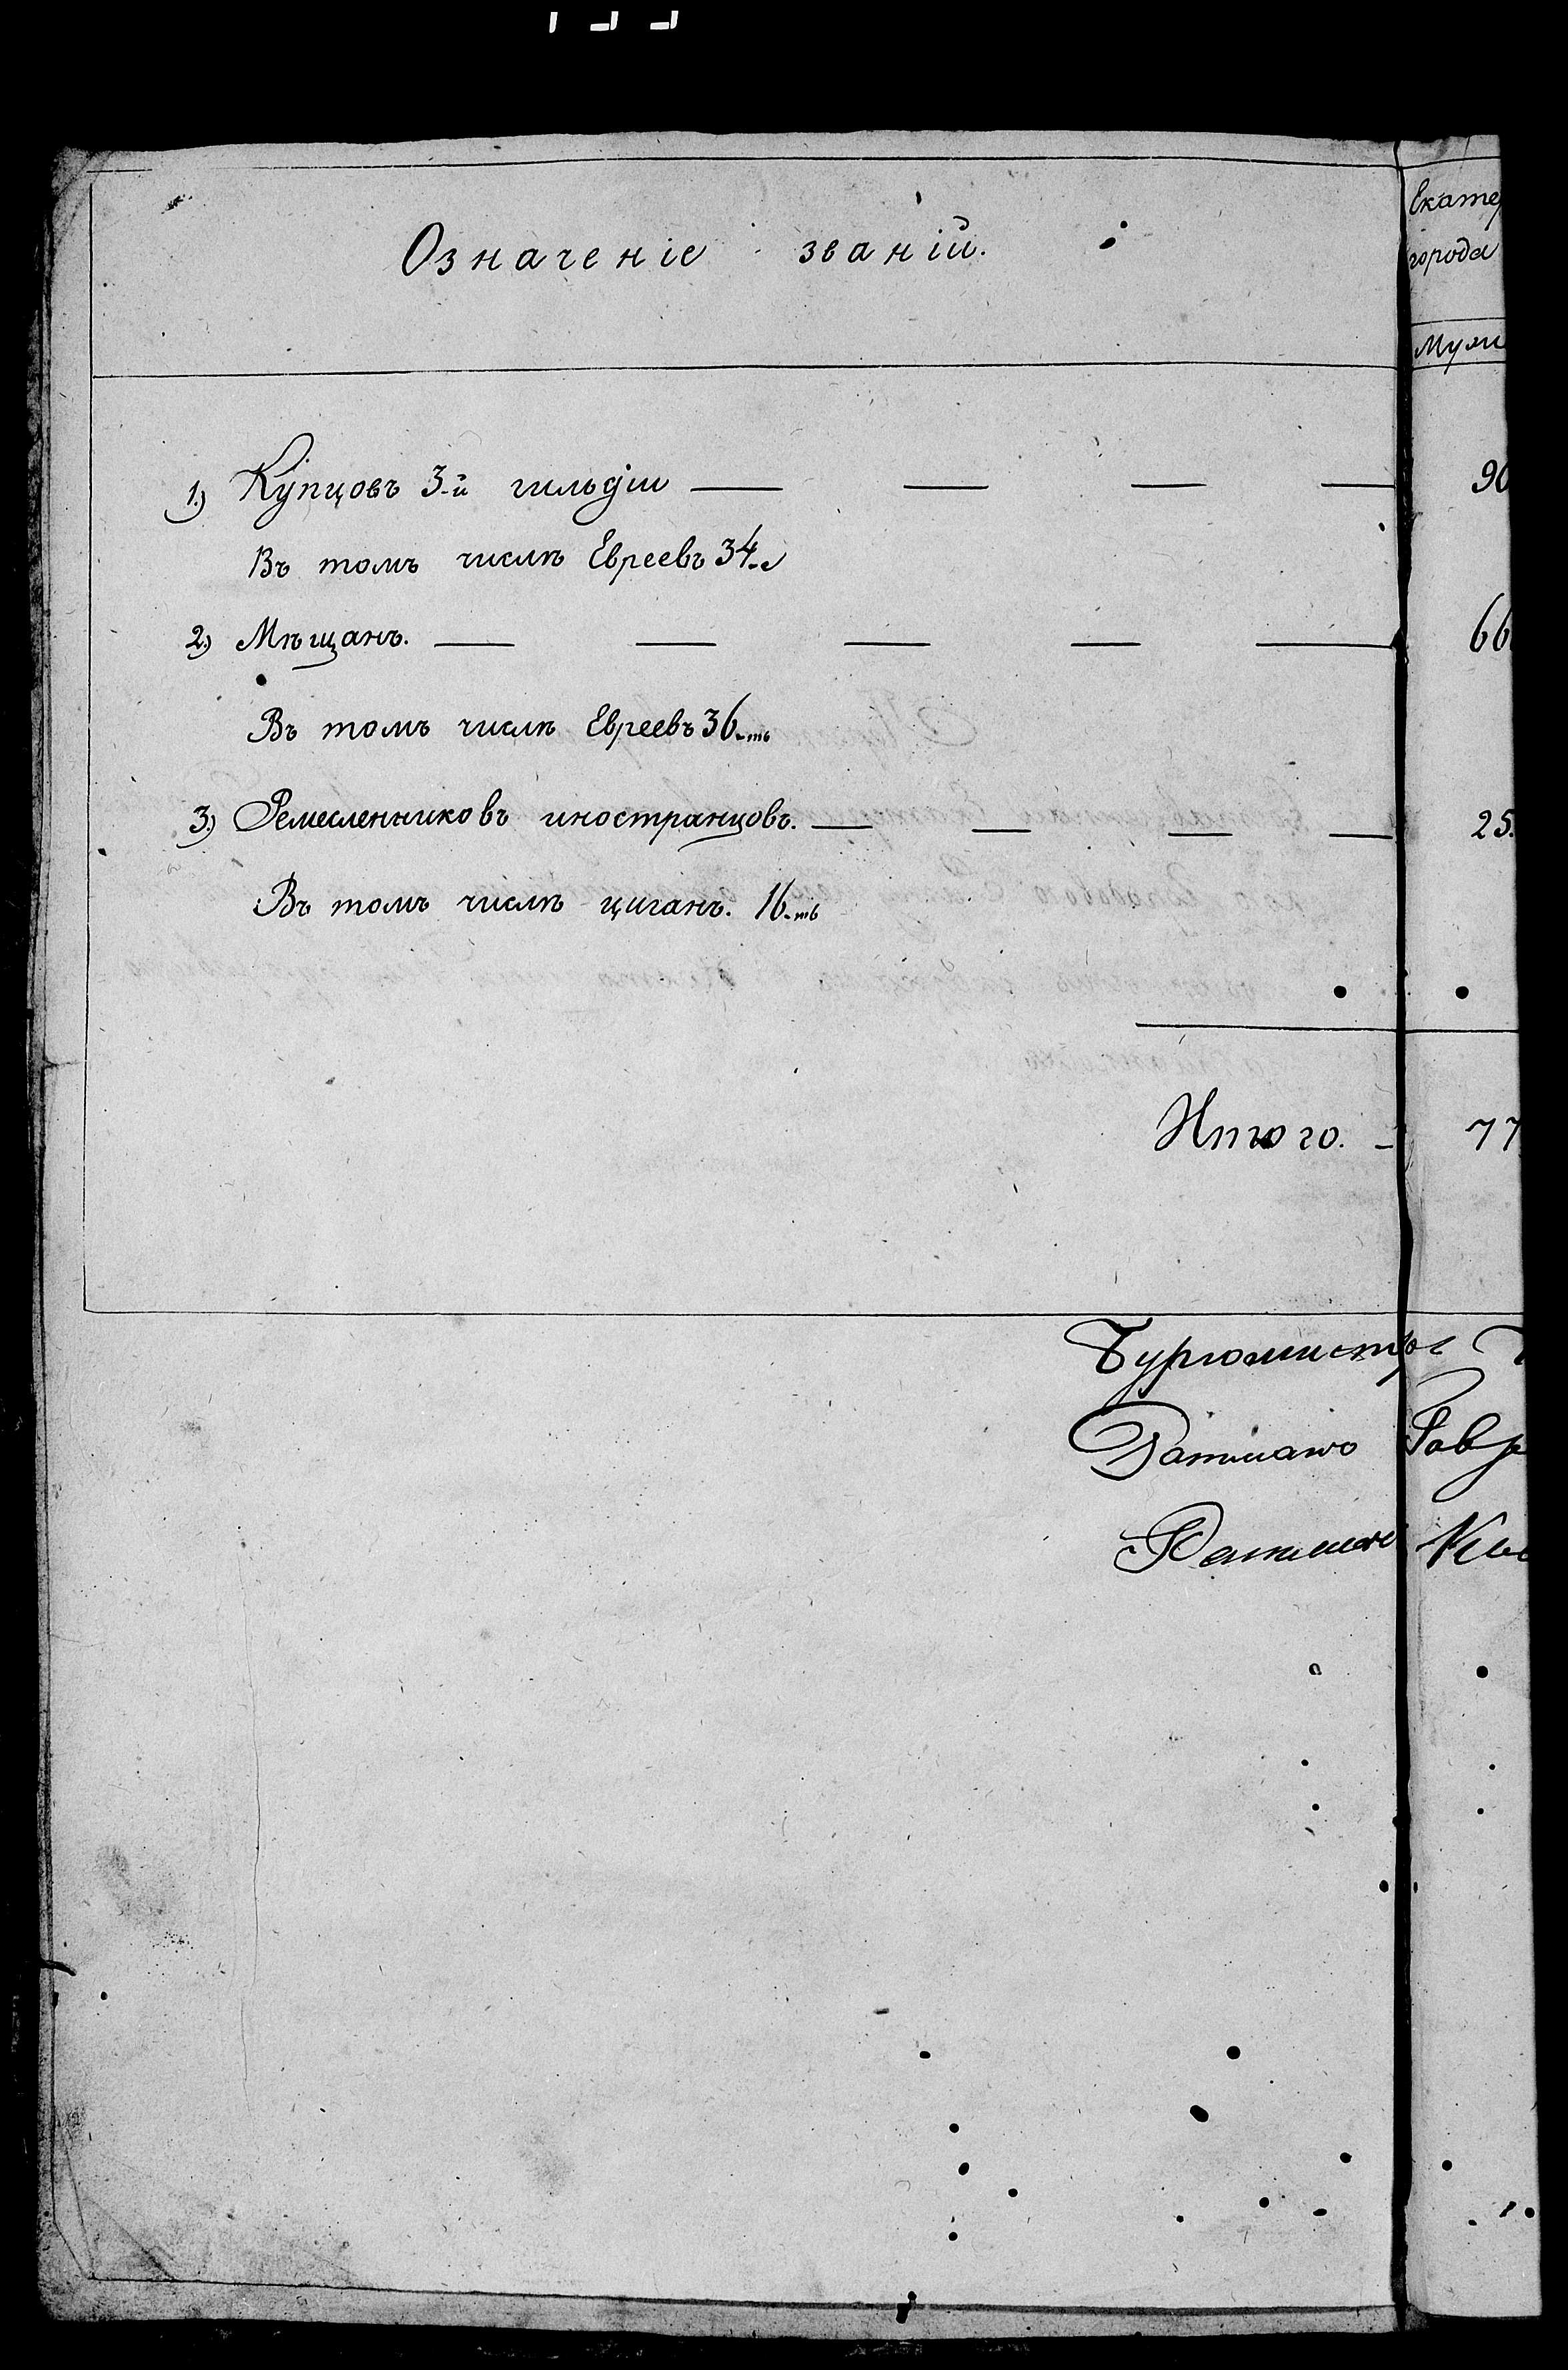 Означеніе званій.
Екатер
города
Муж
1.) Купцовъ 3-й гильдіи — — — — 90
Въ томъ числѣ Евреевъ 34-е
2.) Мѣщанъ. — — — — — 66
Въ томъ числѣ Евреевъ 36-ть
3.) Ремесленниковъ иностранцовъ. — — — — 25.
Въ томъ числѣ циганъ. 16-ть
Итого. — 77
Бургомистръ
Ратманъ Гавр
Ратманъ